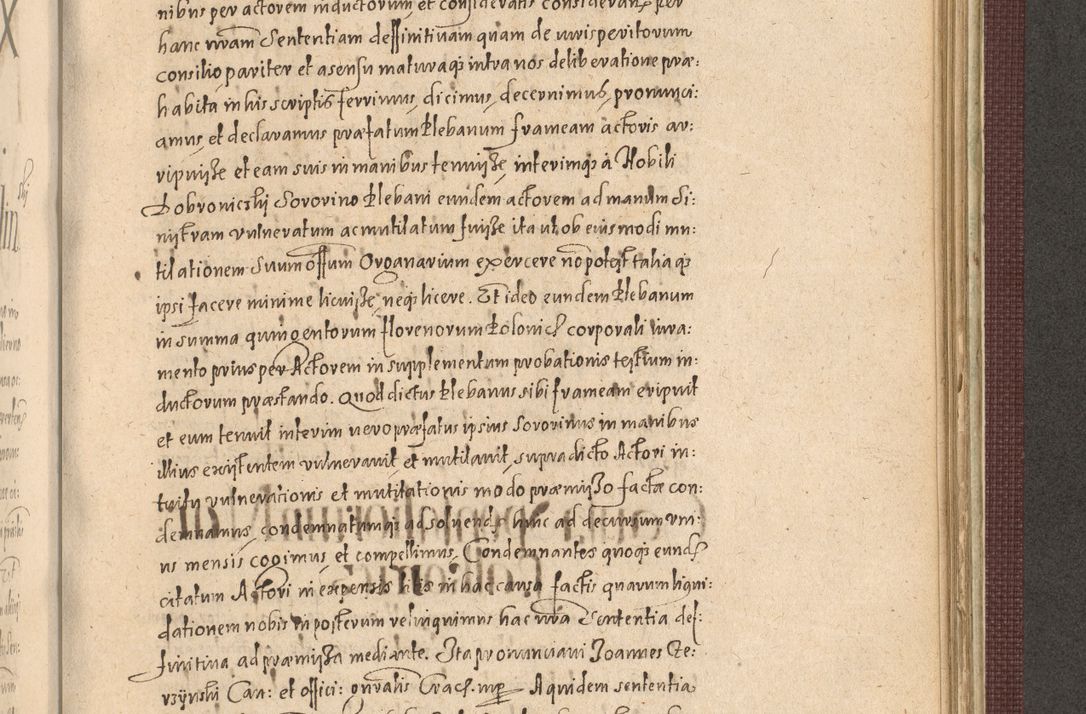 nibus per actorem inductorum, et consideratis consideran: per
hanc nram Sententiam deffinitivam quam de iurisperitorum
consilio pariter et asensu maturaq intra nos deliberatione præ:
habita in his scriptis ferrimus, dicimus, decernimus, pronunci:
amus, et declaramus præfatum Plebanum frameam actoris ar:
ripuisse et eam suis in manibus tenuisse, interimq à Nobili
Dobroniczki Sororino Plebani eundem actorem ad manum Si:
nistram vulneratum ac mutilatum fuisse ita ut ob eiusmodi mu:
tilationem Suum offium Organarium exercere no potest taliaq
ipsi facere minime licuisse, neq licere. Et ideo eundem Plebanum
in summa quingentorum florenorum Polonic: corporali iura:
mento prius per Actorem in supplementum probationis testium in:
ductorum præstando. Quod dictus Plebanus sibi frameam eripuit
et eum tenuit interim vero præfatus ipsius Sororinus in manibus
illius existentem vulneravit, et mutilavit, supradicto Actori in:
tuitu vulnerationis et mutilationis modo præmisso factæ con:
demnamus, condemnatumq ad solvend: hinc ad decursum vni:
us mensis cogimus, et compellimus. Condemnantes quoq eund:
citatum Actori in expensis litis in hac causa factis quarum liqui:
dationem nobis in posterum relinquimus hac nra Sententia def:
finitiva ad præmissa mediante. Ita pronunciavi Joannes Ge:
rzÿnski Can: et offici: gnralis Crac: mpp A quidem sententia